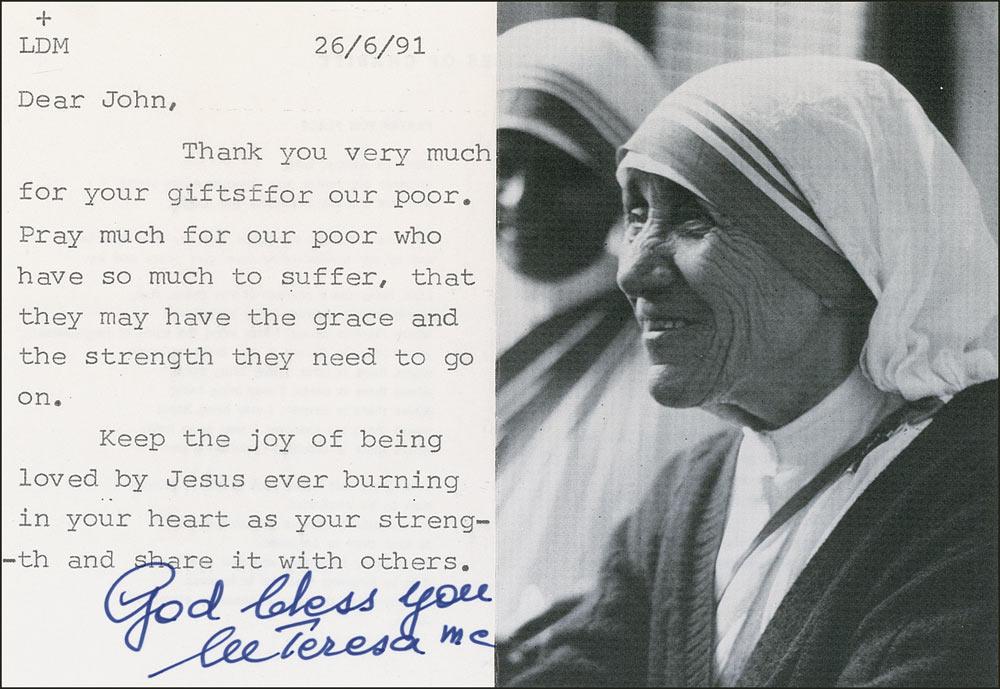 +
LDM 26/6/91
Dear John,
Thank you very much
for your giftsffor our poor.
Pray much for our poor who
have so much to suffer, that
they may have the grace and
the strength they need to go
on.
Keep the joy of being
loved by Jesus ever burning
in your heart as your streng-
-th and share it with others.
God bless you
lee Teresa mc